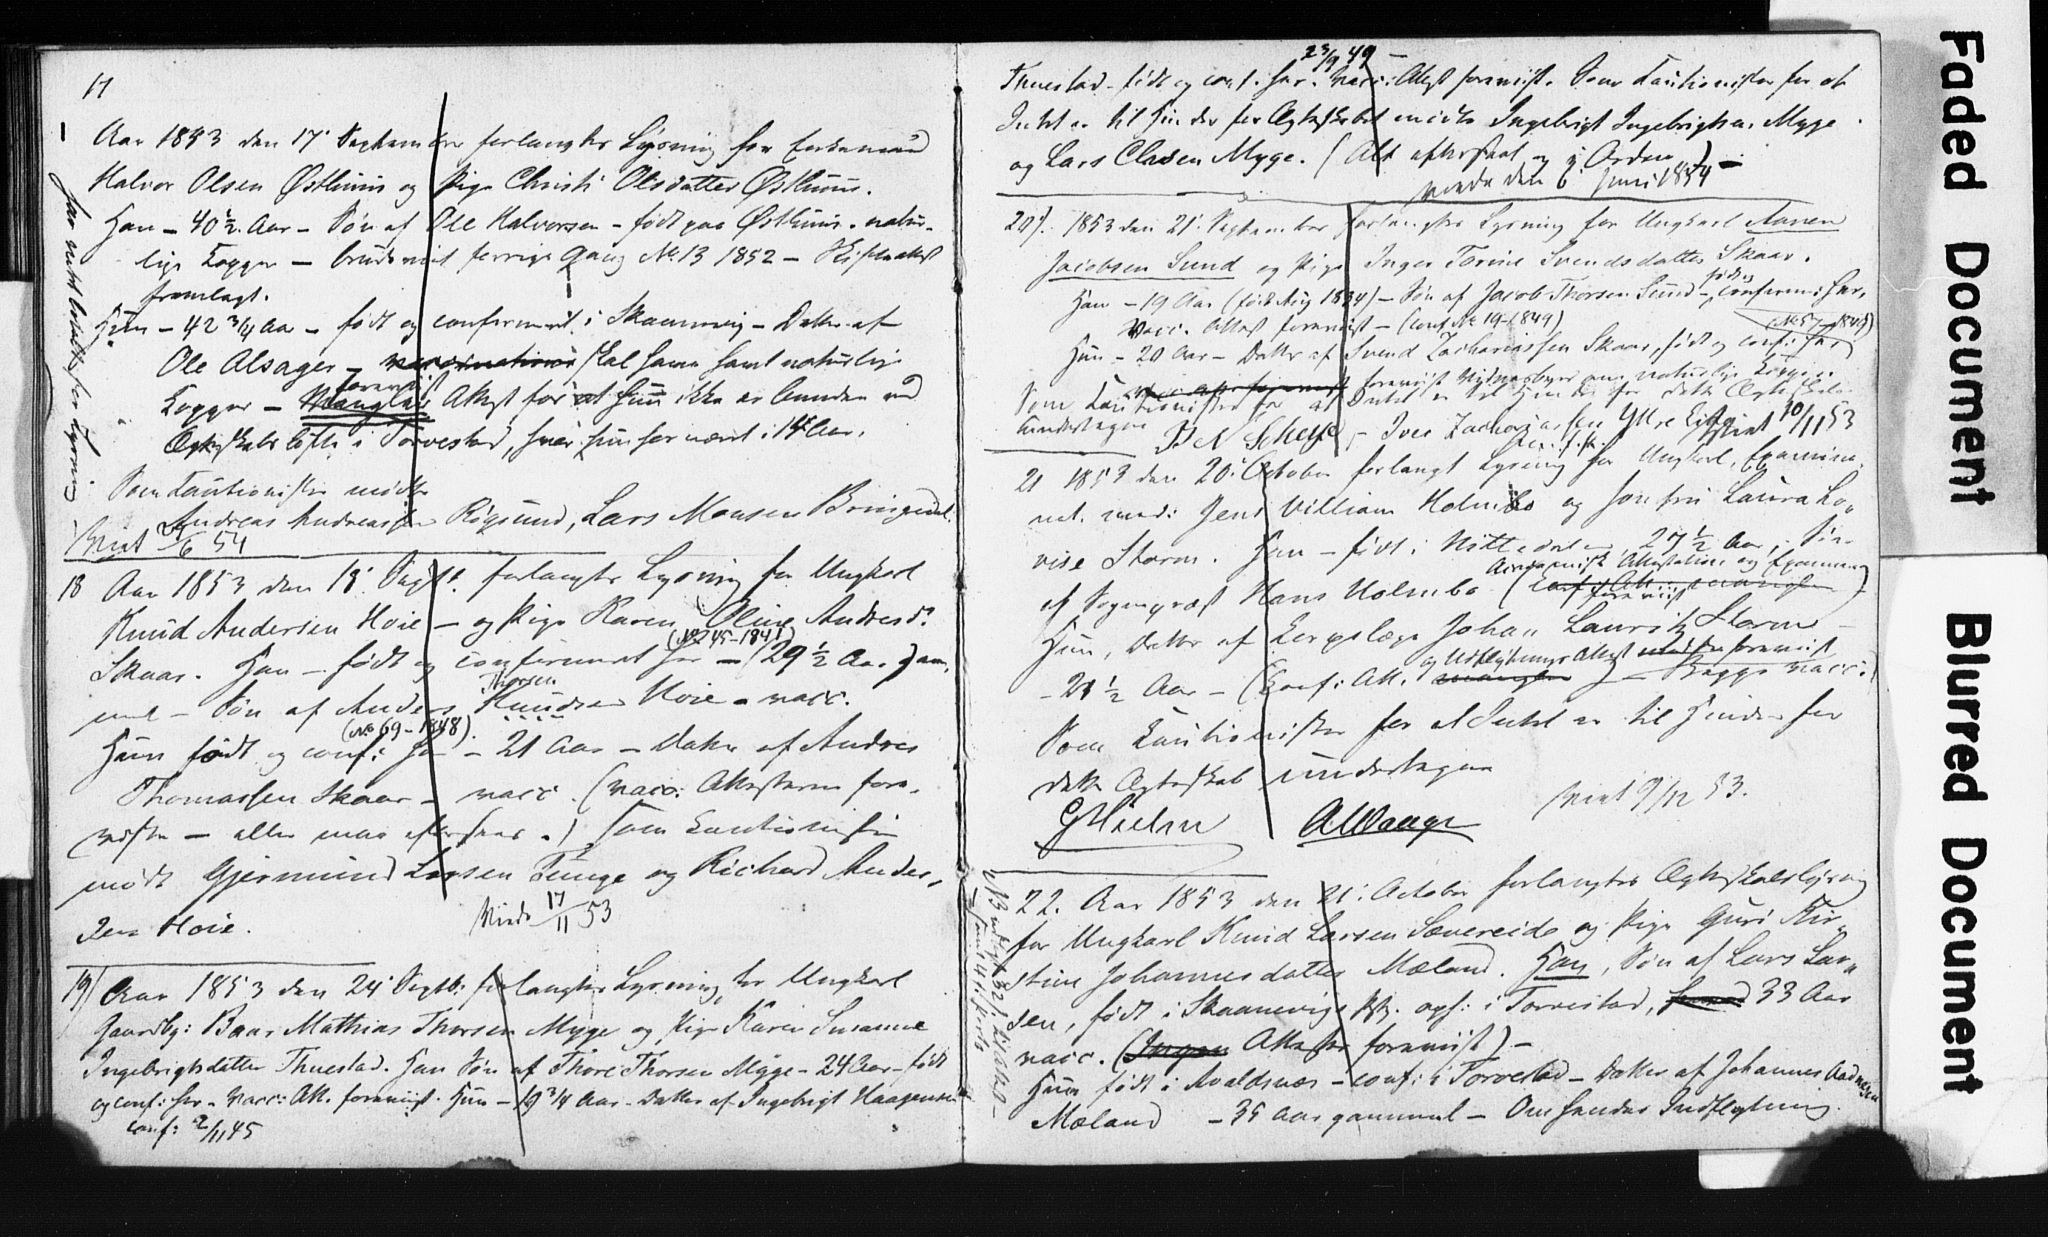 17
Aar 1853 den 17' September forlangtes Lysning for Enkemand
Halvor Olsen Østhuus og Pige Christi Olsdatter Østhuus.
Han – 40 ½ Aar – Søn af Ole Halvorsen – født paa Østhuus – natur-
lige Kopper – brudeviet forrige Gang No 13 1852 – Skifteattest
fremlagt.
Hun – 42 ¾ Aar – født og confirmeret i Skaanevig – Datter af
Ole Alsager – vaccinations skal have havt naturlige
Kopper – Mangler forevist Attest for at hun ikke er bunden ved
Ægteskabsløfte i Torvestad, hvor hun har været i 14 Aar.
Som Cautionister mødte
Andreas Andreassen Røgsund, Lars Monsen Bringedal.
Viet /6 54
– har intet betalt for Lysning
18 Aar 1853 den 18' Septb. forlangtes Lysning for Ungkarl
Knud Andersen Hoie – og Pige Karen Oline Andresd:
Skaar. Han – født og confirmeret her – (No 245–1841) (29 ½ Aar) gam-
mel – Søn af Anders Thorsen Knudsen Hoie – vacc.
Hun født og conf: her (No 69–1848) – 21 Aar – Datter af Andres
Thomassen Skaar – vacc. (vacc. Attesterne fore-
viste – alle maa eftersees.) Som Cautionister
mødte Gjermund Larsen Tunge og Richard Ander-
sen Hoie.
Viede 17/11 53
19) Aar 1853 den 24' Septb: forlangtes Lysning for Ungkarl
Gaardbr: Baar Mathias Thorsen Myge og Pige Karen Susanne
Ingebrigtsdatter Thuestad. Han Søn af Thore Thorsen Myge – 24 Aar – født
og conf: her – vacc: Att. foreviist. Hun – 19 ¾ Aar – Datter af Ingebrigt Haagensen
conf: 2/11 45
23/9 49 –
Thuestad – født og conf. her. Vacc: Attest foreviist. Som Cautionister for at
Intet er til Hinder for Ægteskabet mødte Ingebrigt Ingebrigtsen Myge
og Lars Clasen Myge. (Alt efterseet og i Orden) –
viede den 6 Juni 1854
20). 1853 den 21' September forlangtes Lysning for Ungkarl Aanen
Jacobsen Sund og Pige Inger Torine Svendsdatter Skaar.
Han – 19 Aar (født Aug 1834) – Søn af Jacob Thorsen Sund – født og confirm: her,
Vacc. Attest foreviist – (conf No 19–1849) (No 57–1848)
Hun – 20 Aar – Datter af Svend Zachariassen Skaar, født og conf: her
vacc. att. foreviist foreviist Vidnesbyrd om naturlige Kopper
Som Cautionister for at Intet er til Hinder for dette Ægteskab
undertegne
P N Schelf – Iver Zachariassen Ytre Eide
m. f. P. Viet 10/11 53
21 1853 den 20' October forlangt Lysning for Ungkarl, Examina-
tus med: Jens William Holmbo og Jomfru Laura Lo-
vise Storm. Han – født i Nittedal – 27 ½ Aar, Søn
af Sogneprest Hans Holmbo (Academisk Attestation og Examen
Conf: Att. mangler) foreviist
Hun, Datter af Corpslæge Johan Lauritz Storm –
– 21 ½ Aar – (Conf: Att. og Udflytnings Attest mangler foreviist – vacc:)
Som Cautionister for at Intet er til Hinder for
dette Ægteskab undertegne
G Nielsen A Waage
Viet 9/12 53.
22. Aar 1853 den 21' October forlangtes Ægteskabslysning
for Ungkarl Knud Larsen Sævereide og Pige Guri Kir-
stine Johannesdatter Mæland. Han, Søn af Lars Lar-
sen, født i Skaanevigs Pgj. oph: i Torvestad, 33 Aar
vacc. (Ingen Attester foreviist) –
Hun født i Avaldsnæs – conf: i Torvestad – Datter af Johannes Aadnesen
Mæland – 35 Aar gammel – Om hendes Indflytning
Faded Document
Blurred Document